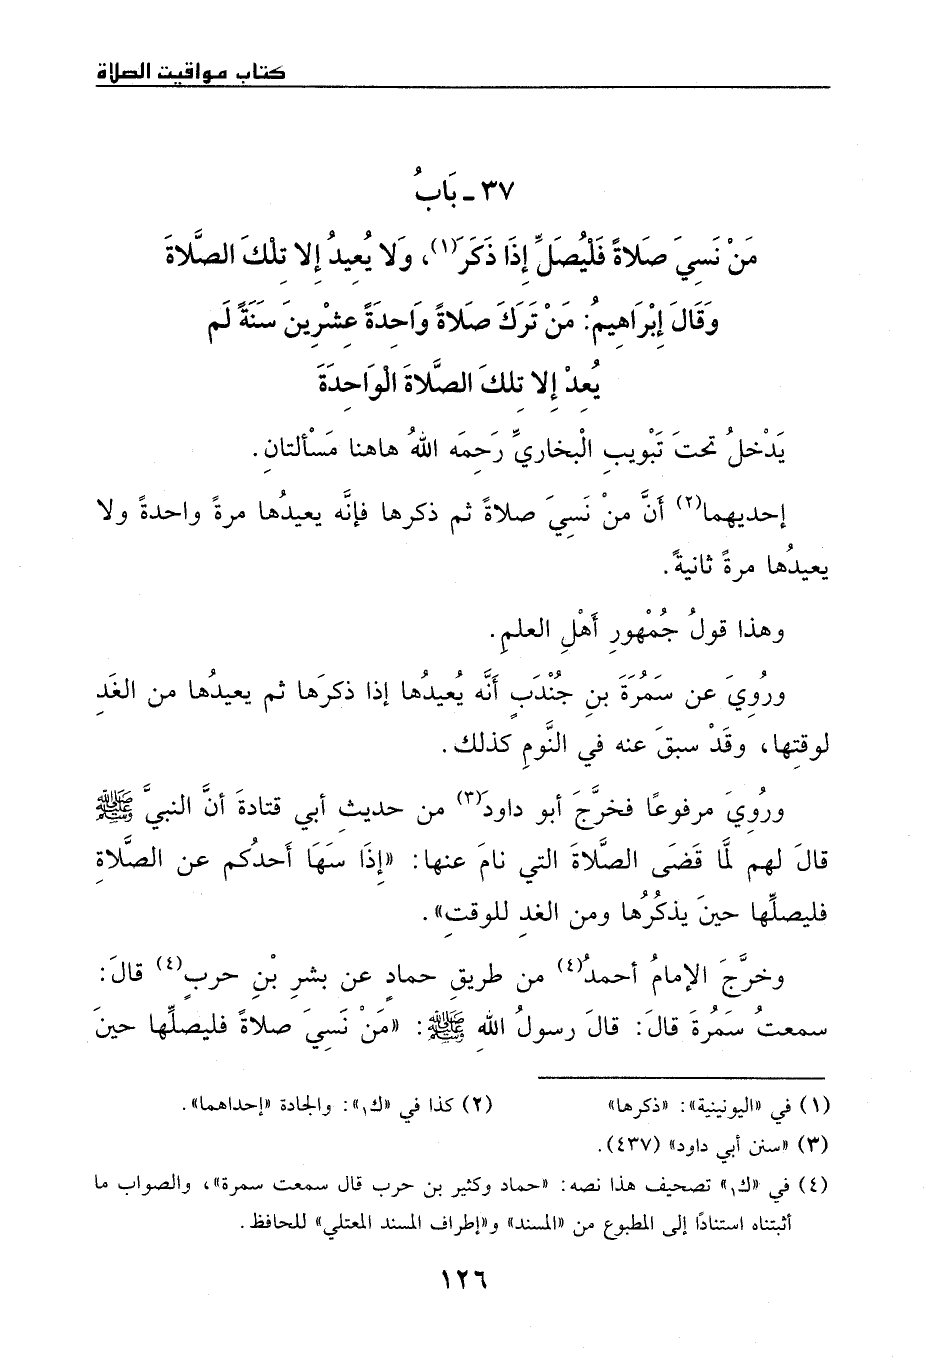 كتاب مواقيت الصلاة
٣٧ - بَابُ
مَنْ نَسِيَ صَلاةً فَلْيُصَلِّ إِذَا ذَكَرَ(١)، وَلا يُعِيدُ إِلا تِلْكَ الصَّلَاةَ
وَقَالَ إِبْرَاهِيمُ: مَنْ تَرَكَ صَلاةً وَاحِدَةً عِشْرِينَ سَنَةً لَم
يُعِدْ إِلا تِلكَ الصَّلاةَ الْوَاحِدَةَ
يَدْخلُ تحتَ تَبْويبِ الْبخاريِّ رَحِمَه اللهُ هاهنا مَسْألتانِ.
إحديهما(٢) أَنَّ منْ نَسِيَ صلاةً ثم ذكرها فإنَّه يعيدُها مرةً واحدةً ولا
يعيدُها مرةً ثانيةً.
وهذا قولُ جُمْهورِ أَهْلِ العلمِ.
ورُوِيَ عن سَمُرَةَ بنِ جُنْدَبٍ أَنَّه يُعيدُها إذا ذكرَها ثم يعيدُها من الغَدِ
لوقتِها، وقَدْ سبقَ عنه في النَّومِ كذلك.
ورُوِيَ مرفوعًا فخرَّجَ أبو داودَ(٣) من حديثِ أبي قتادةَ أنَّ النبيَّ ﷺ
قالَ لهم لمَّا قَضَى الصَّلاةَ التي نامَ عنها: «إِذَا سَهَا أَحدُكم عن الصَّلاةِ
فليصلِّها حينَ يذكُرُها ومن الغدِ للوقتِ».
وخرَّجَ الإمامُ أحمدُ(٤) من طريقِ حمادٍ عن بشرِ بْنِ حربٍ(٤) قالَ:
سمعتُ سَمُرةَ قالَ: قالَ رسولُ اللهِ ﷺ: «مَنْ نَسِيَ صلاةً فليصلِّها حينَ
(١) في «اليونينية»: «ذكرها» (٢) كذا في «ك١»: والجادة «إحداهما».
(٣) «سنن أبي داود» (٤٣٧).
(٤) في «ك١» تصحيف هذا نصه: «حماد وكثير بن حرب قال سمعت سمرة»، والصواب ما
أثبتناه استنادًا إلى المطبوع من «المسند» و«إطراف المسند المعتلي» للحافظ.
١٢٦